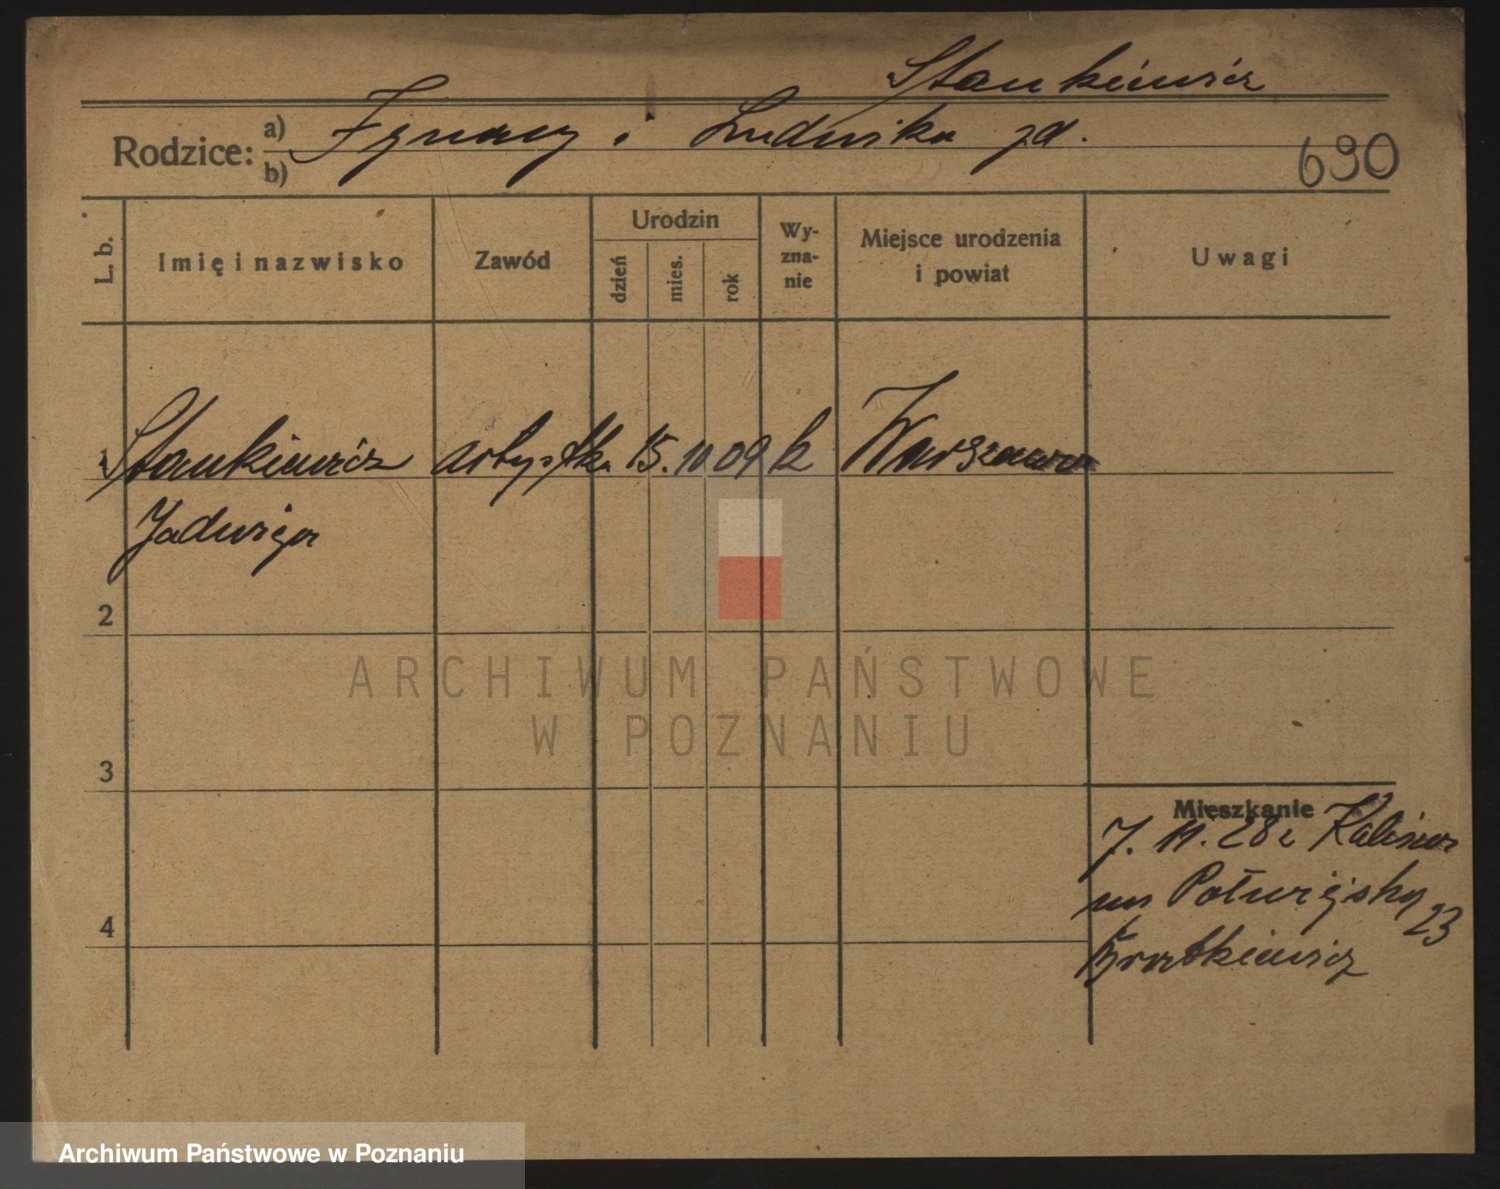 Stankiewicz
Rodzice: a) Ignacy i Ludwika zd.
b)
690
L. b.
Imię i nazwisko
Zawód
Urodzin
dzień
mies.
rok
Wy-
zna-
nie
Miejsce urodzenia
i powiat
Uwagi
1 Stankiewicz artystka 15. 10 09 k Warszawa
Jadwiga
2
ARCHIWUM PAŃSTWOWE
W POZNANIU
3
Mieszkanie
7. 11. 28 z Kalisza
na Półwiejską 23
4
Archiwum Państwowe w Poznaniu